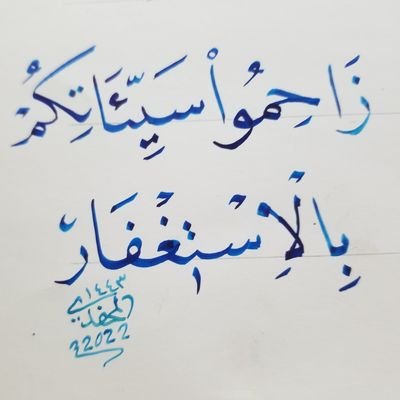 زَاحِمُواْ سَيِّئَاتِكُمْ
بِالْاِسْتِغْفَارْ
١٤٤٣
2022